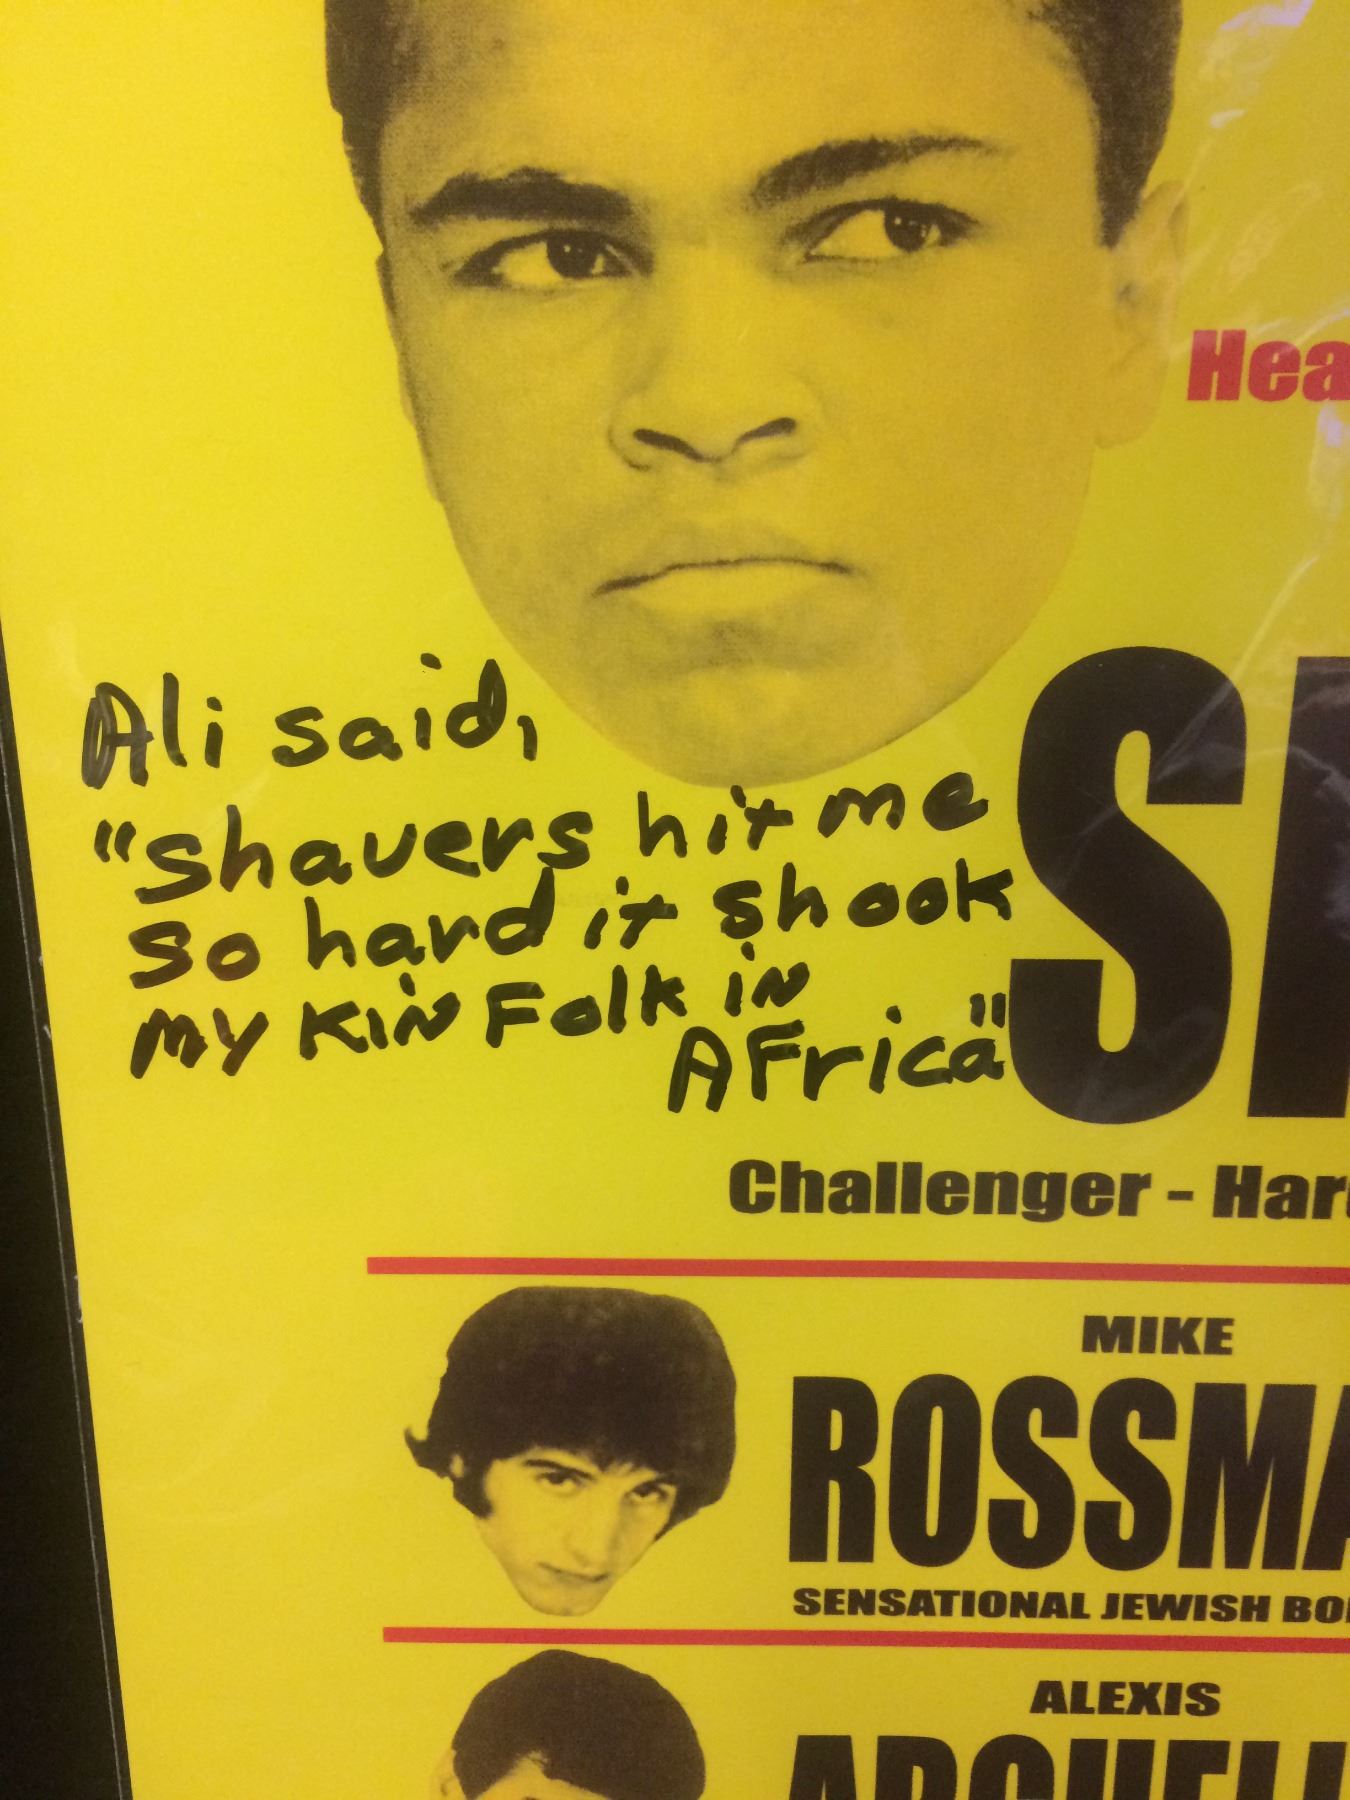 Hea
Ali said,
"Shavers hit me
so hard it shook
my kin Folk in
AFrica"
Challenger - Har
MIKE
ROSSMA
SENSATIONAL JEWISH BO
ALEXIS
ARGUELL